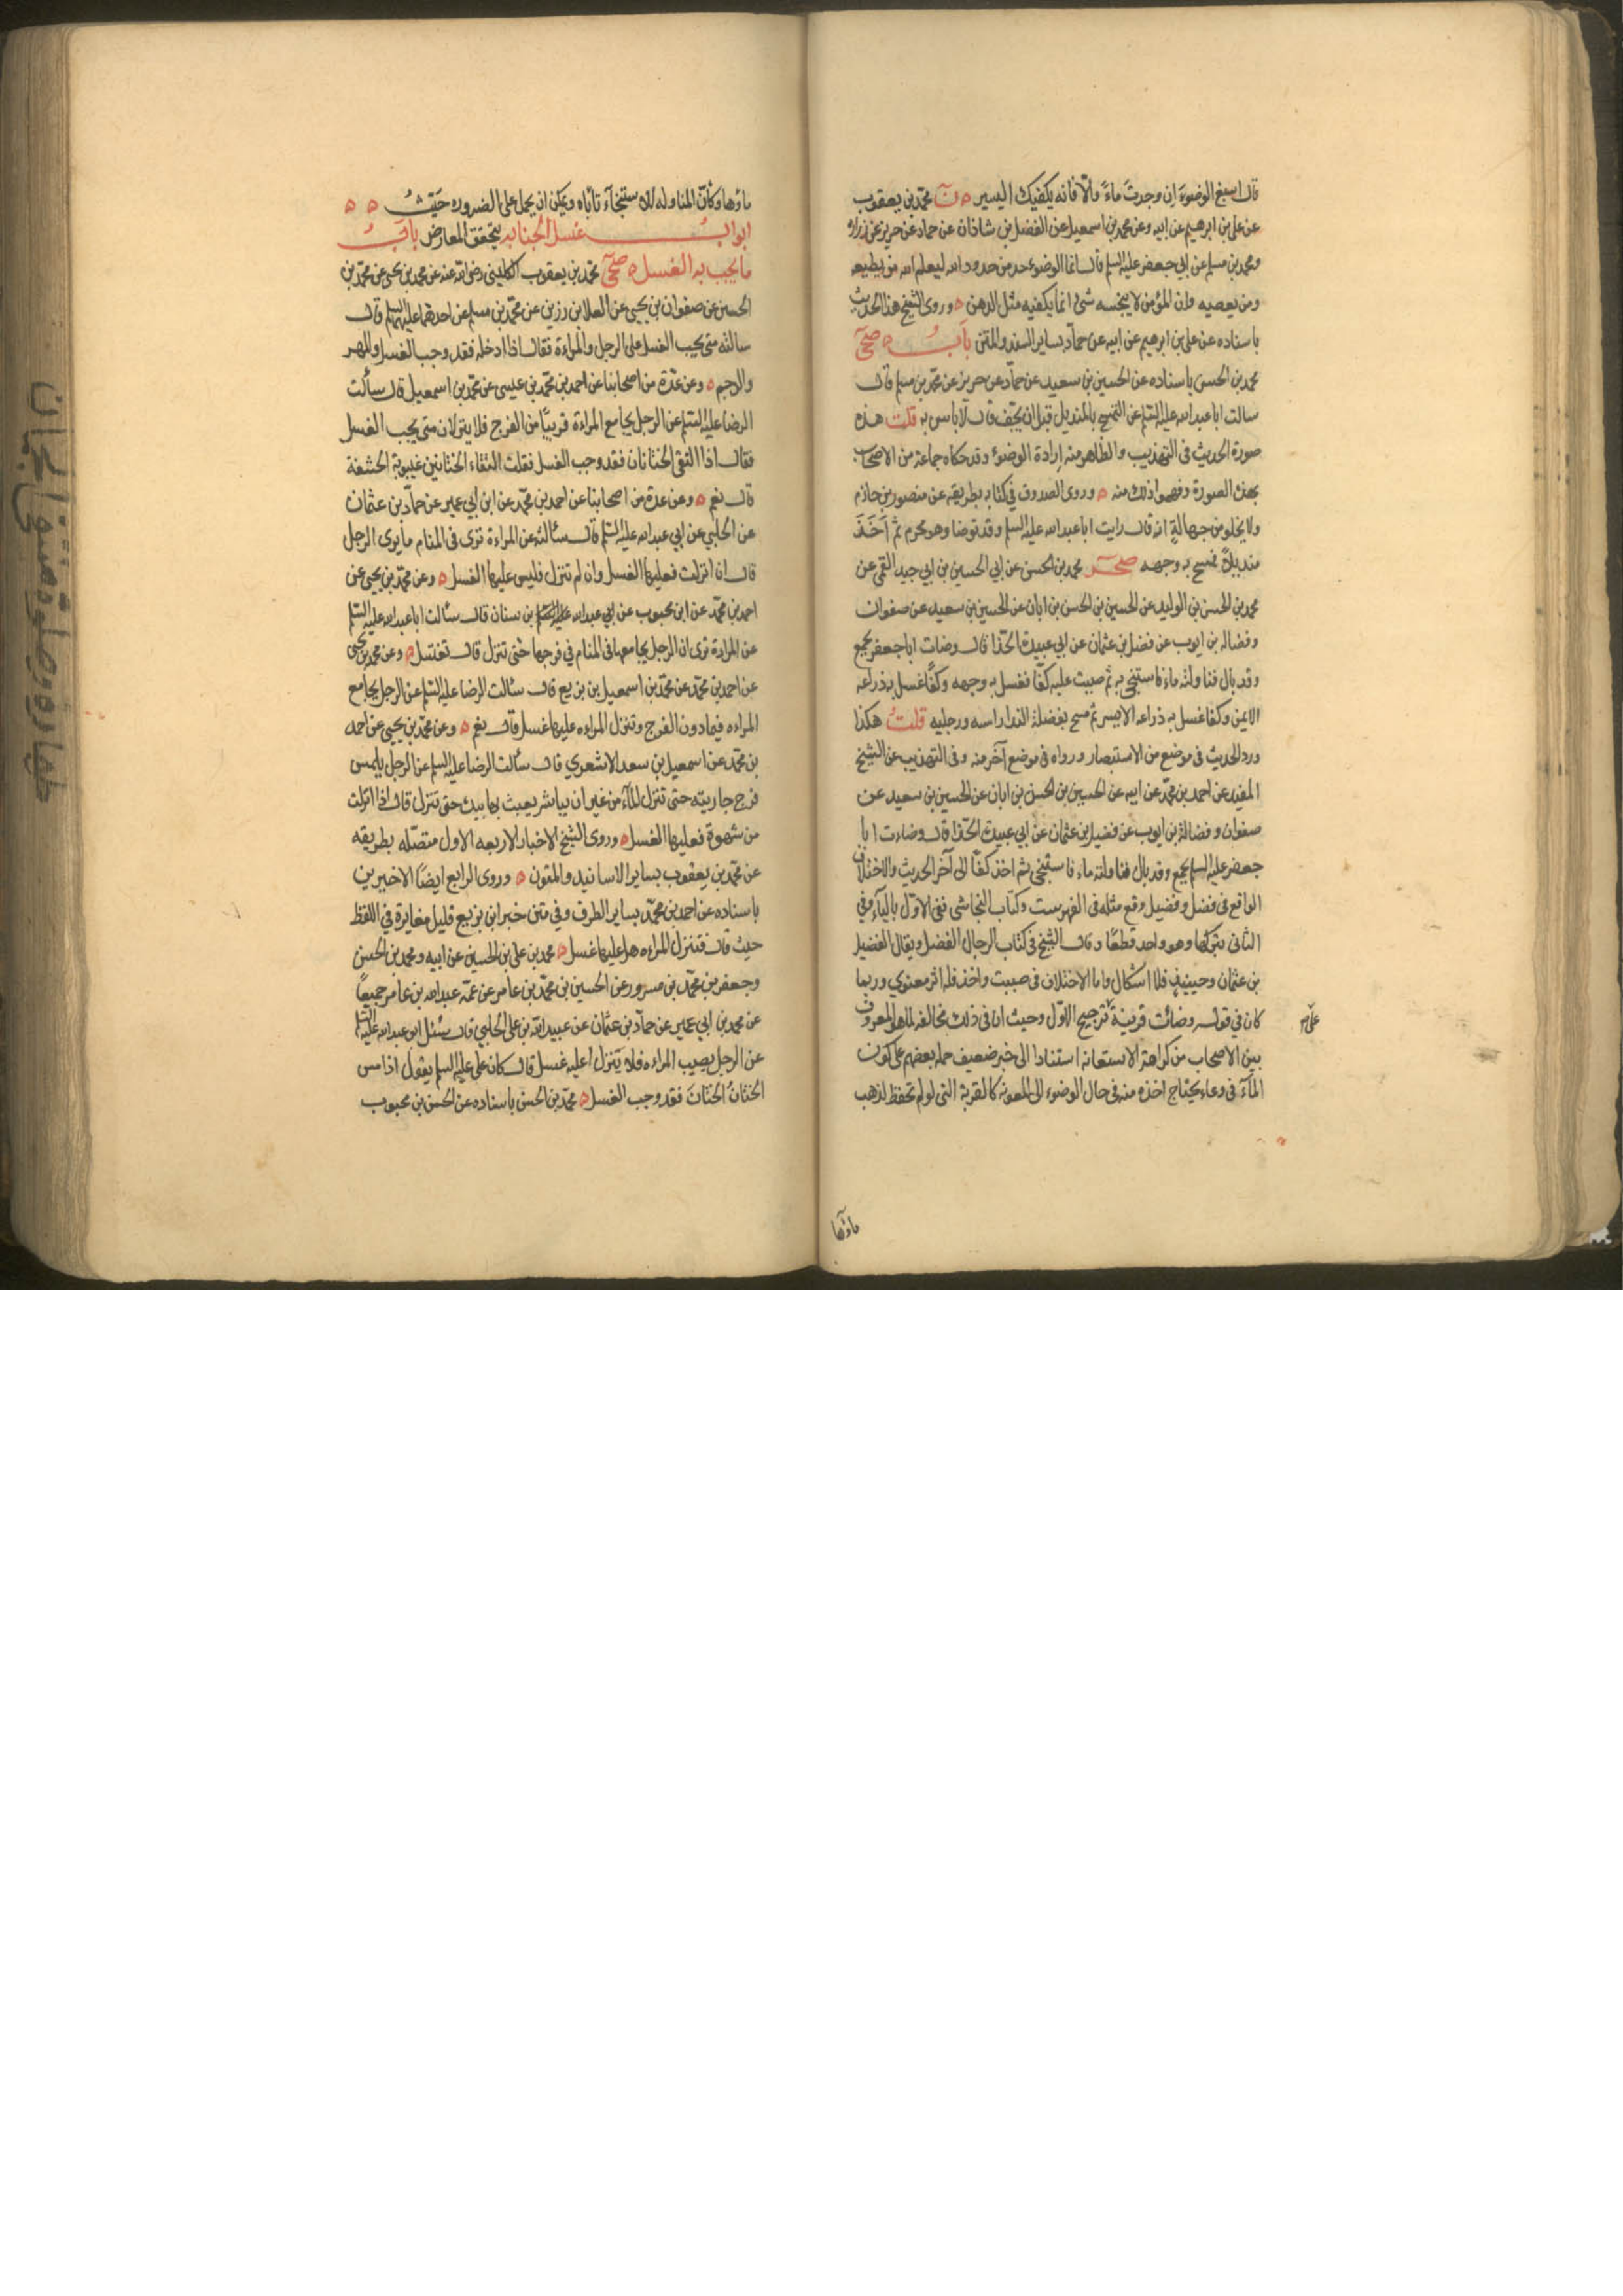 قال اسبغ الوضوءَ اِن وجدتَ ماءً والّا فانه يكفيك اليسير ه نَ محمّد بن يعقوب
عن علي بن ابرهيم عن ابيه وعن محمد بن اسمعيل عن الفضل بن شاذان عن حماد عن حريز عن زرارة
ومحمد بن مسلم عن ابي جعفر عليه السلم قال انما الوضوء حد من حدود الله ليعلم الله من يطيعه
ومن يعصيه وان المؤمن لا ينجسه شئ انما يكفيه مثل الدهن ه وروى الشيخ هذا الحديث
باسناده عن علي بن ابرهيم عن ابيه عن حماد بساير السند والمتن بابُ ه صحي
محمد بن الحسن باسناده عن الحسين بن سعيد عن حماد عن حريز عن محمد بن مسلم قال
سالت ابا عبد الله عليه السلم عن التمسح بالمنديل قبل ان يجفّ قال لا باس به قلت هذه
صورة الحديث في التهذيب والظاهر منه إرادة الوضوء وقد حكاه جماعة من الاصحاب
بهذه الصورة وفهموا ذلك منه ه وروى الصدوق في كتابه بطريقه عن منصور بن حازم
ولا يخلو من جهالة انه قال رايت ابا عبد الله عليه السلم وقد توضا وهو محرم ثم اَخَذَ
منديلاً فمسح به وجهه صحر محمد بن الحسن عن ابي الحسين بن ابي جيد القمي عن
محمد بن الحسن بن الوليد عن الحسين بن الحسن بن ابان عن الحسين بن سعيد عن صفوان
وفضاله بن ايوب عن فضل بن عثمان عن ابي عبيدة الحذا قال وضات ابا جعفر بجمع
وقد بال فناولته ماء فاستنجى به ثم صببت عليه كفّا فغسل به وجهه وكفًّا غسل به ذراعه
الايمن وكفا غسل به ذراعه الايسر ثم مسح بفضلة الندا راسه ورجليه قلتُ هكذا
ورد الحديث في موضع من الاستبصار ورواه في موضع آخر منه وفي التهذيب عن الشيخ
المفيد عن احمد بن محمّد عن ابيه عن الحسين بن الحسن بن ابان عن الحسين بن سعيد عن
صفوان وفضالة بن ايوب عن فضيل بن عثمان عن ابي عبيدة الحذا قال وضات ابا
جعفر عليه السلم بجمع وقد بال فناولته ماء فاستنجى ثم اخذ كفّا الى آخر الحديث والاختلاف
الواقع في فضل وفضيل وقع مثله في الفهرست وكتاب النجاشي ففي الاوّل بالياء وفي
الثاني بتركها وهو واحد قطعًا وقال الشيخ في كتاب الرجال الفضل ويقال الفضيل
بن عثمان وحينئذ فلا اشكال واما الاختلاف في صببت واخذ فله اثر معنوي وربما
كان في قوله وضائت قرينة ترجيح الاوّل وحيث ان في ذلك مخالفة لما هو المعروف
على
بين الاصحاب من كراهة الاستعانه استنادا الى خبر ضعيف حمله بعضهم على كون
المآء في وعاء يحتاج اخذه منه في حال الوضوء الى المعونة كالقربة التي لو لم تحفظ لذهب
ماؤها
ماؤها وكأنّ المناوله للاستنجآء تأباه ويمكن ان يحمل على الضروره حَيثُ ه ه
ابوابُ غسل الجنابه يتحقق المعارض بابُ
ما يجب به الغسل ه صحي محمد بن يعقوب الكليني رضي الله عنه عن محمد بن يحيى عن محمّد بن
الحسين عن صفوان بن يحيى عن العلا بن رزين عن محمّد بن مسلم عن احدهما عليهما السلم قال
سالته متى يجب الغسل على الرجل والمراءة فقال اذا ادخله فقد وجب الغسل والمهر
والرجم ه وعن عدّة من اصحابنا عن احمد بن محمّد بن عيسى عن محمّد بن اسمعيل قال سألت
الرضا عليه السلم عن الرجل يجامع المراءة قريبًا من الفرج فلا ينزلان متى يجب الغسل
فقال اذا التقى الختانان فقد وجب الغسل فقلت التقاء الختانين غيبوبة الحشفة
قال نعم ه وعن عدة من اصحابنا عن احمد بن محمّد عن ابن ابي عمير عن حمّاد بن عثمان
عن الحلبي عن ابي عبد الله عليه السلم قال سألته عن المراءة ترى في المنام ما يرى الرجل
قال ان انزلت فعليها الغسل وان لم تنزل فليس عليها الغسل ه وعن محمّد بن يحيى عن
احمد بن محمّد عن ابن محبوب عن ابي عبد الله عليه السلم بن سنان قال سالت ابا عبد الله عليه السلم
عن المراءة ترى ان الرجل يجامعها في المنام في فرجها حتى تنزل قال تغتسل ه وعن محمد بن يحيى
عن احمد بن محمّد عن محمّد بن اسمعيل بن بزيع قال سالت الرضا عليه السلم عن الرجل يجامع
المراءه فيما دون الفرج وتنزل المراءه عليها غسل قال نعم ه وعن محمّد بن يحيى عن احمد
بن محمّد عن اسمعيل بن سعد الاشعري قال سألت الرضا عليه السلم عن الرجل يلمس
فرج جاريته حتى تنزل المآء من غير ان يباشر يعبث بها بيده حتى تنزل قال اذا انزلت
من شهوة فعليها الغسل ه وروى الشيخ الاخبار الاربعه الاول متصله بطريقه
عن محمّد بن يعقوب بساير الاسانيد والمتون ه وروى الرابع ايضًا الاخيرين
باسناده عن احمد بن محمّد بساير الطرف وفي متن خبر ابن بزيع قليل مغايرة في اللفظ
حيث قال فتنزل المراءه هل عليها غسل ه محمد بن علي بن الحسين عن ابيه ومحمد بن الحسن
وجعفر بن محمّد بن مسرور عن الحسين بن محمّد بن عامر عن عمّه عبد الله بن عامر جميعًا
عن محمد بن ابي عمير عن حمّاد بن عثمان عن عبيد الله بن علي الحلبي قال سئل ابو عبد الله عليه السلم
عن الرجل يصيب المراءه فلا ينزل اعليه غسل قال كان علي عليه السلم يقول اذا مس
الختانُ الختانَ فقد وجب الغسل ه محمّد بن الحسن باسناده عن الحسن بن محبوب